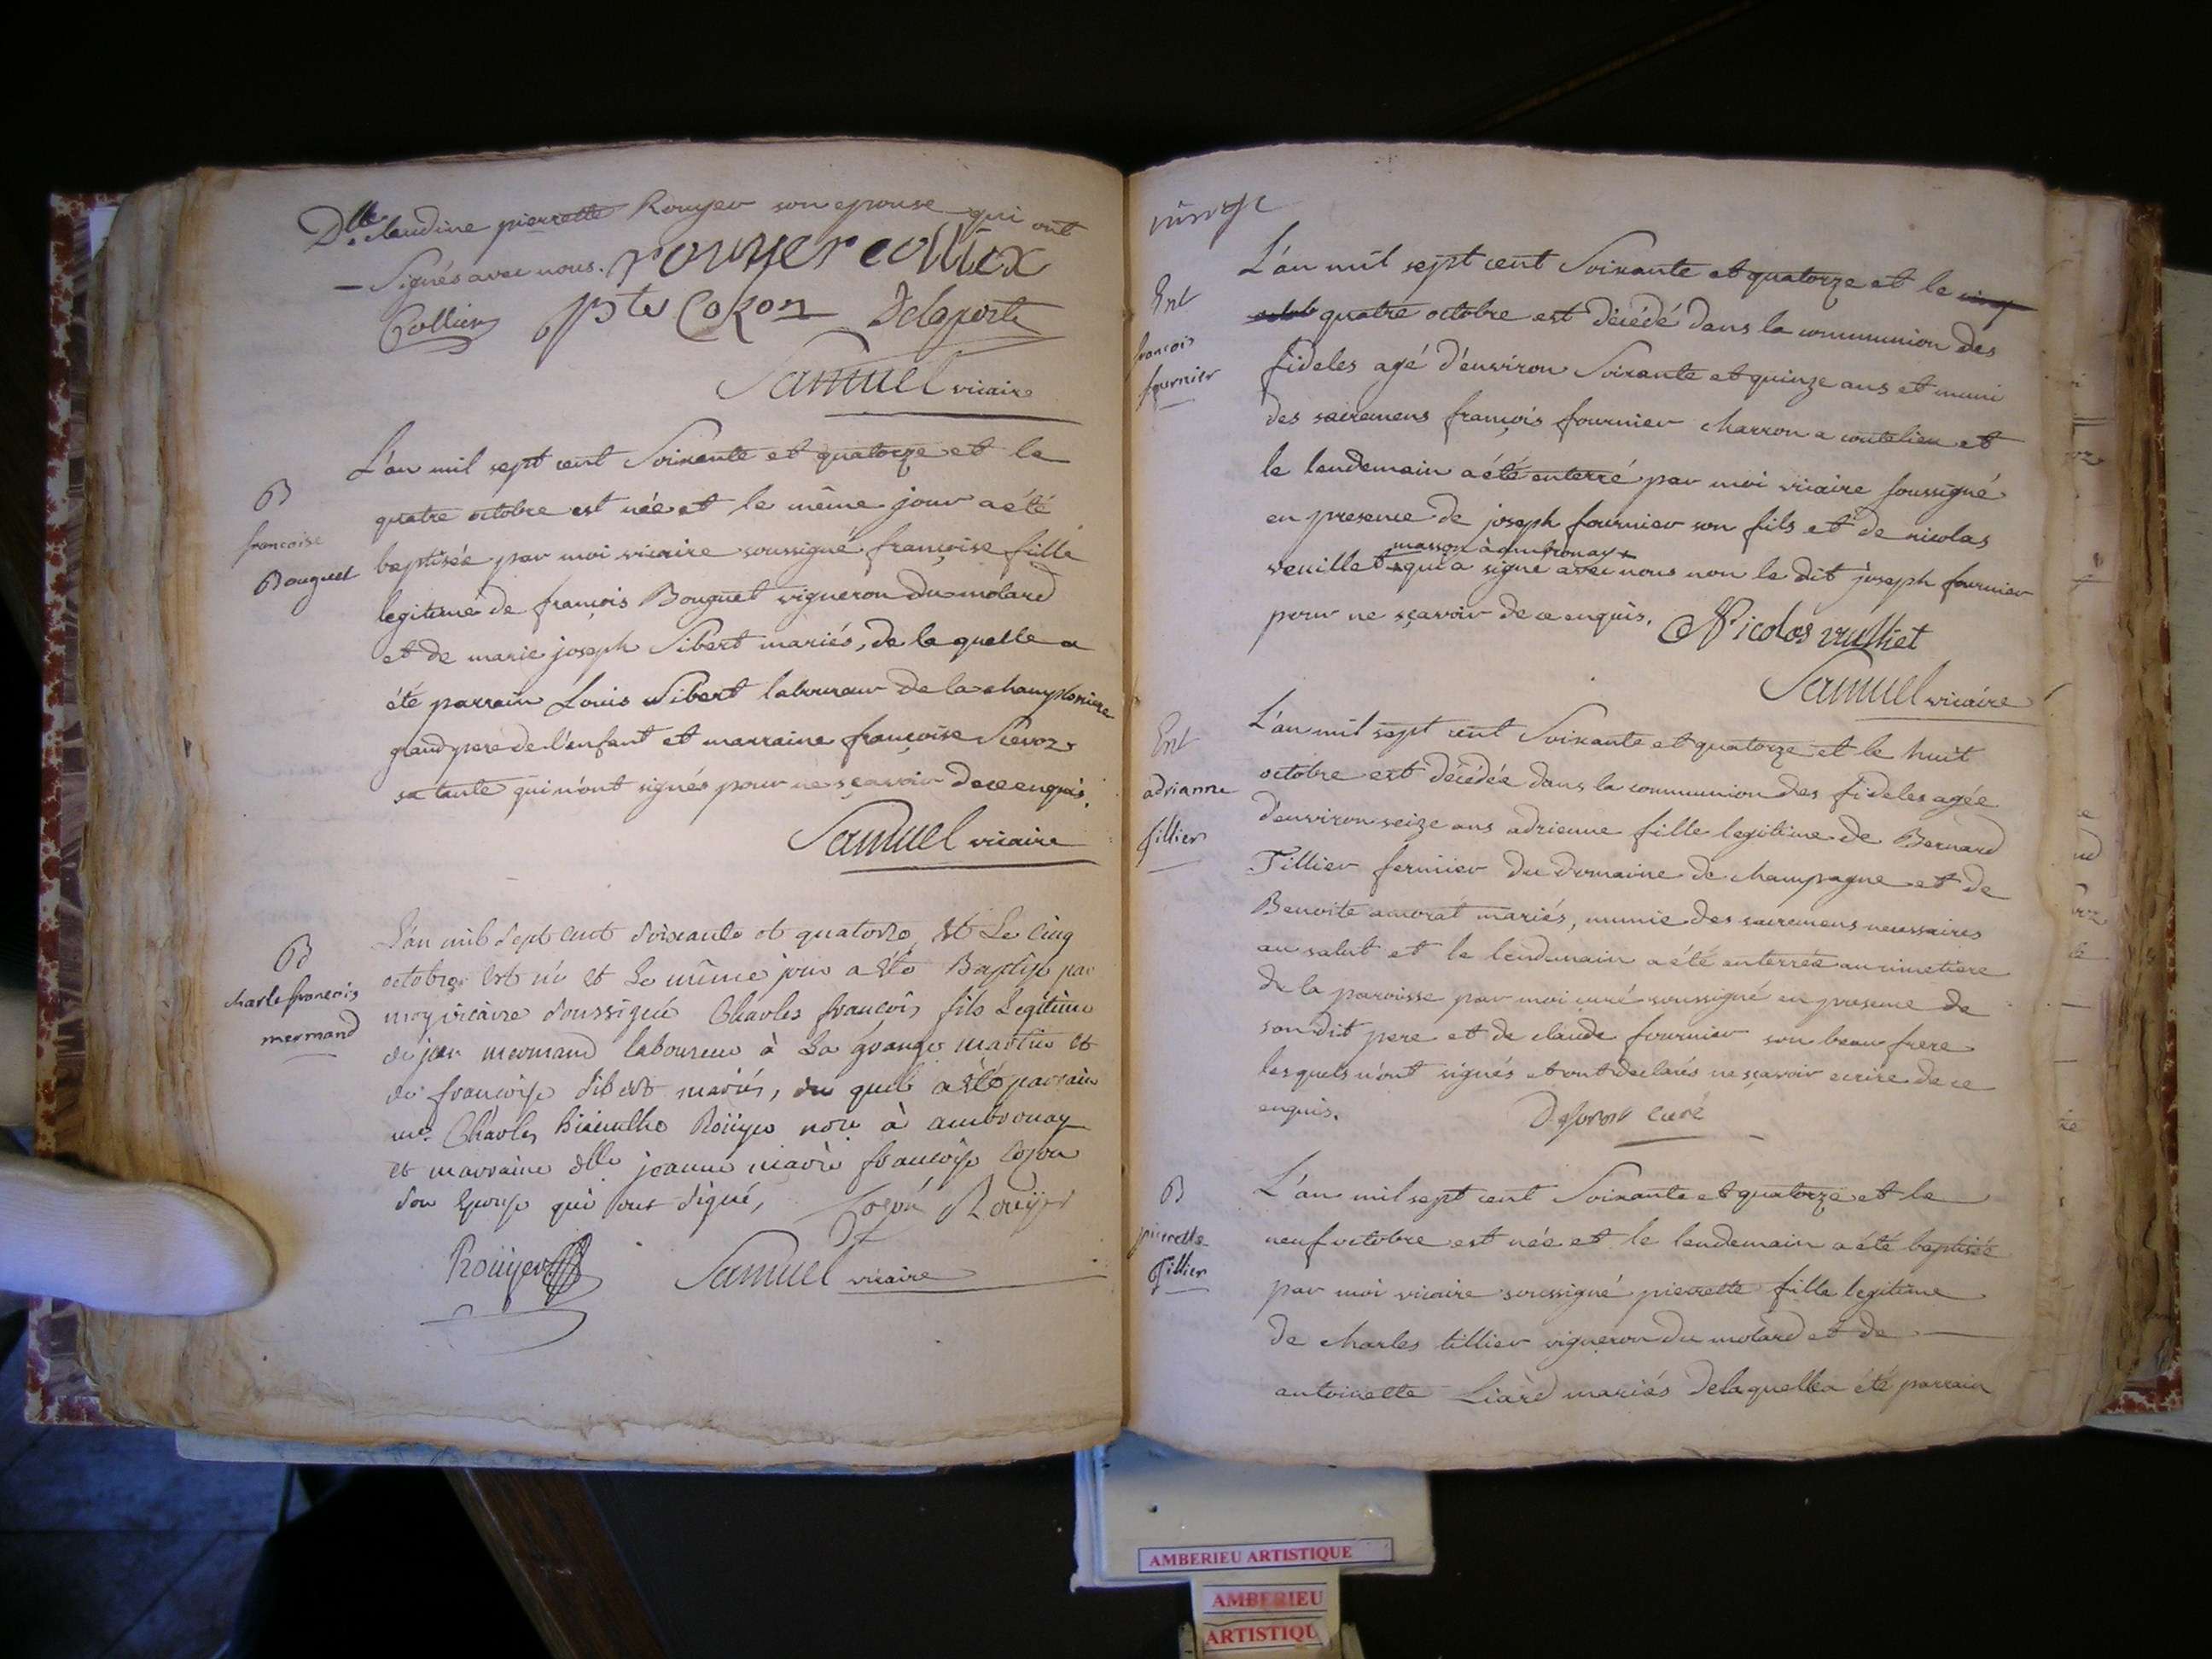 Dlle claudine pierrette Rouyer son epouse qui ont
Signés avec nous. rouyer colliex
Collier pte Cozon Delaporte
Samuel vicaire
L'an mil sept cent Soixante et quatorze et le
B
quatre octobre est née et le même jour a été
francoise
baptisée par moi vicaire soussigné françoise fille
Bouguet
legitime de françois Bouguet vigneron du molard
et de marie joseph Sibert mariés, de la quelle a
été parrain Louis Sibert laboureur de la champloniere
grand pere de l'enfant et marraine françoise
sa tante qui n'ont signés pour ne sçavoir de ce enquis.
Samuel vicaire
L'an mil sept cent soixante et quatorze et Le cinq
B
octobre est né et Le même jour a été Baptisé par
charle francois
moy vicaire soussigné Charles françois fils Legitime
mermand
de jean mermand laboureur à La grange martin et
de françoise sibert mariés, du quel a été parrain
me Charles hiacinthe Roüyer nore à ambronay
et marraine dlle jeanne marie françoise cozon
son Epouse qui ont signé, Cozon Rouyer
Roüyer Samuel vicaire
L'an mil sept cent Soixante et quatorze et le cinq
Ent
quatre octobre est décédé dans la communion des
francois
fideles agé d'environ Soixante et quinze ans et muni
fournier
des sacremens françois fournier charron a coutelieu et
le lendemain a été enterré par moi vicaire soussigné
en presence de joseph fournier son fils et de nicolas
masson à ambronay
veuillet qui a signé avec nous non le dit joseph fournier
pour ne sçavoir de ce enquis. Nicolas vulliet
Samuel vicaire
L'an mil sept cent Soixante et quatorze et le huit
Ent
octobre est décédée dans la communion des fideles agée
adrianne
d'environ seize ans adrienne fille legitime de Bernard
tillier
Tillier fermier du domaine de champagne et de
Benoite amorat mariés, munie des sacremens necessaires
au salut et le lendemain a été enterrée au cimetiere
de la paroisse par moi curé soussigné en presence de
son dit pere et de claude fournier son beau frere
lesquels n'ont signés et ont declarés ne sçavoir ecrire de ce
enquis. curé
L'an mil sept cent Soixante et quatorze et le
B
neuf octobre est née et le lendemain a été baptisée
pierrette
par moi vicaire soussigné pierrette fille legitime
Tillier
de charles tillier vigneron du molard et de
antoinette Liard mariés de la quelle a été parrain
AMBERIEU ARTISTIQUE
AMBERIEU
ARTISTIQU